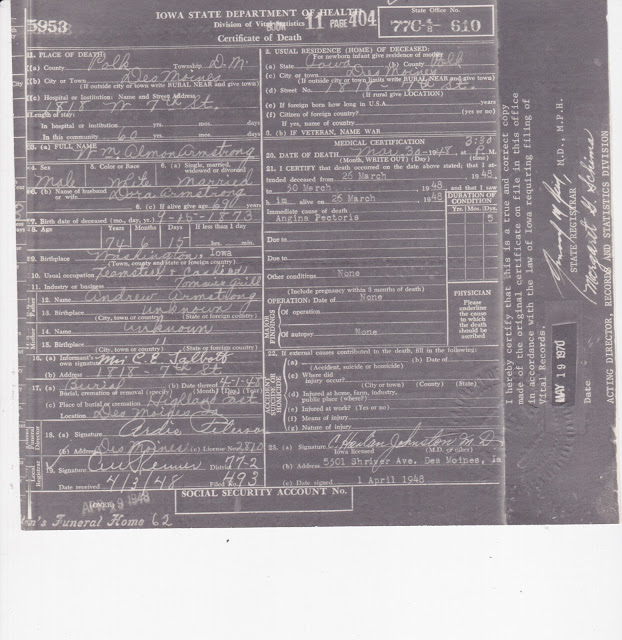 IOWA STATE DEPARTMENT OF HEALTH
Division of Vital Statistics
BOOK 11 PAGE 404
Certificate of Death
5953
State Office No.
77C-4/8- 610
1. PLACE OF DEATH:
(a) County Polk Township D.M.
(b) City or Town Des Moines
(If outside city or town limits write RURAL NEAR and give town)
(c) Hospital or Institution: Name and Street Address
1818 - W. 7th St.
Length of stay:
In hospital or institution yrs. mos. days
In this community 60 yrs. mos. days
2. USUAL RESIDENCE (HOME) OF DECEASED:
For newborn infant give residence of mother
(a) State Iowa (b) County Polk
(c) City or town Des Moines
(If outside city or town limits write RURAL NEAR and give town)
(d) Street No. 1818 - 7th St.
(If rural give LOCATION)
(e) If foreign born how long in U.S.A. years
(f) Citizen of foreign country? (yes or no)
If yes, name of country
3. (a) FULL NAME
Wm Almon Armstrong
3. (b) IF VETERAN, NAME WAR
4. Sex Color or Race 6. (a) Single, married, widowed or divorced
Male White Married
6. (b) Name of husband or wife Dora Armstrong
6. (c) If alive give age 69 years
7. Birth date of deceased (mo., day, yr.) 9-15-1873
8. AGE Years Months Days If less than 1 day
74 6 15 hrs. min.
9. Birthplace Washington, Iowa
(Town, county and state or foreign country)
10. Usual occupation Teamster &
11. Industry or business
12. Name Andrew Armstrong
13. Birthplace Unknown
(City, town or country) (State or foreign country)
14. Name Unknown
15. Birthplace "
(City, town or country) (State or foreign country)
16. (a) Informant's own signature Mrs C. E. Talbott
(b) Address 1818 - 7th St
17. (a) Burial (b) Date thereof 4-1-48
Burial, cremation or removal (specify) (Month) (Day) (Year)
(c) Place of burial or cremation Highland
Location Des Moines Ia
18. (a) Signature Ardis
(b) Address Des Moines (c) License No. 2810
Signature Dist. 77-2
Date received 4/3/48 Filed 493
MEDICAL CERTIFICATION
3:30
20. DATE OF DEATH Mar. 30-1948 at P. M.
(Month, WRITE OUT) (Day) (time)
21. I CERTIFY that death occurred on the date above stated; that I attended deceased from 26 March 1948,
to 30 March 1948 and that I saw
him alive on 26 March 1948
DURATION OF CONDITION
Yrs. Mos. Dys.
Immediate cause of death
Angina Pectoris 5
Due to
Due to
Other conditions None
(Include pregnancy within 3 months of death)
OPERATION: Date of None
MAJOR FINDINGS
Of operation
Of autopsy None
PHYSICIAN
Please underline the cause to which the death should be ascribed
22. If external causes contributed to the death, fill in the following:
(a) (b) Date of
(Accident, suicide or homicide)
(c) Where did injury occur?
(City or town) (County) (State)
(d) Injured at home, farm, industry, public place (where?)
(e) Injured at work? (Yes or no)
(f) Means of injury
(g) Nature of injury
23. (a) Signature C. Harlan Johnston M.D.
Iowa licensed (M.D. or other)
(b) Address 3501 Shriver Ave. Des Moines, Ia
(c) Date signed 1 April 1948
SOCIAL SECURITY ACCOUNT No.
APR 19 1948
Funeral Home 62
I hereby certify that this is a true and correct copy
made of the original certificate on file in this office
in accordance with the law of Iowa requiring filing of
Vital Records.
Date MAY 19 1970
M.D., M.P.H.
STATE REGISTRAR
Margaret
ACTING DIRECTOR, RECORDS AND STATISTICS DIVISION